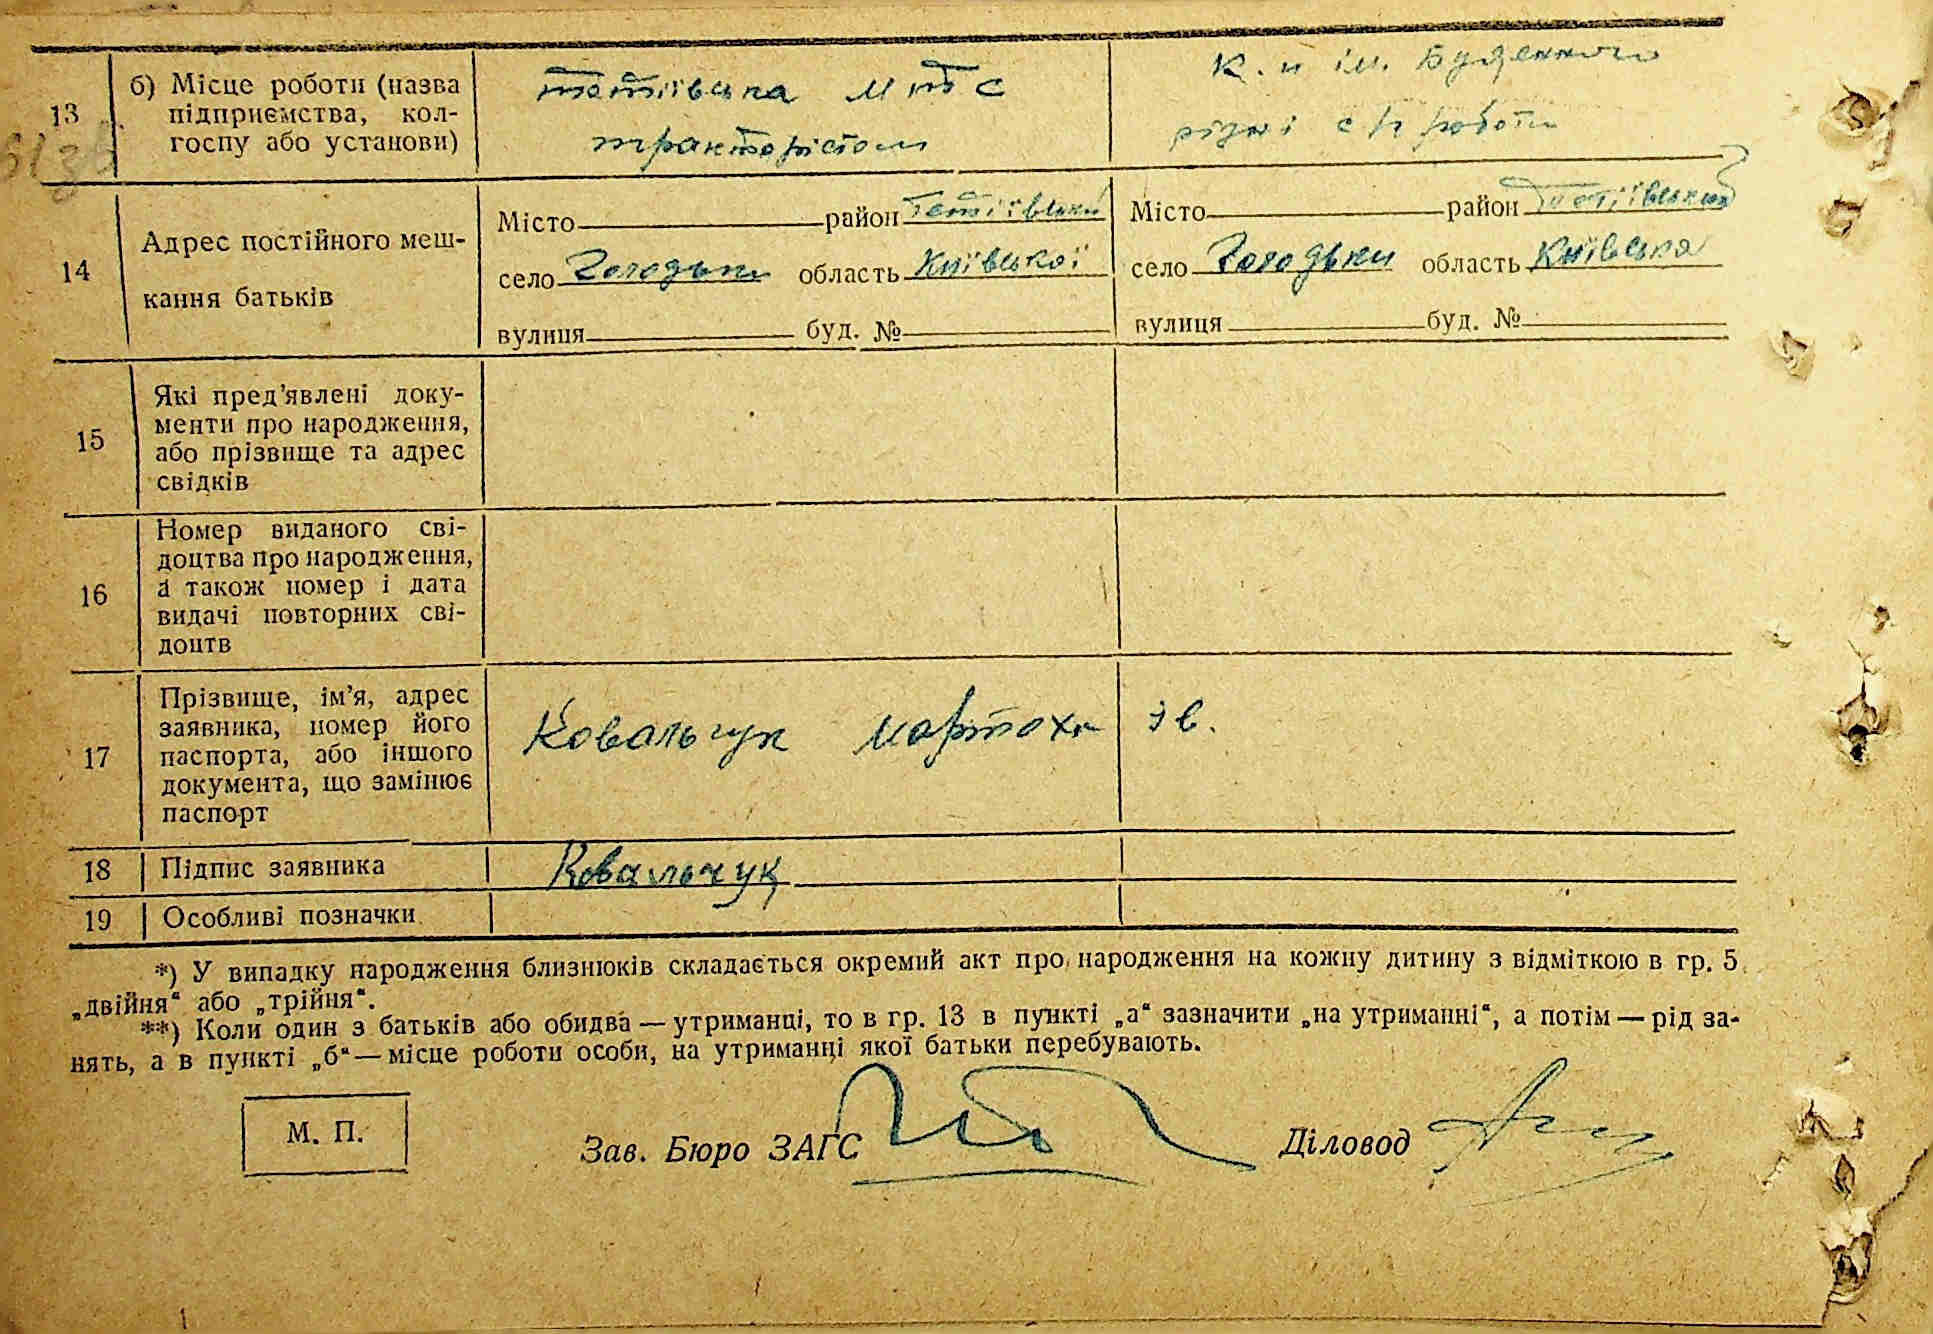 13 б) Місце роботи (назва підприємства, колгоспу або установи)
тетіївська М Т С
трактористом
к. п ім. Будженного
різні с/г роботи
14 Адрес постійного меш-
кання батьків
Місто район Тетіївський
село Голодьки область Київської
вулиця буд. №
Місто район Тетіївський
село Голодьки область Київська
вулиця буд. №
15 Які пред'явлені доку-
менти про народження,
або прізвище та адрес
свідків
16 Номер виданого сві-
доцтва про народження,
а також номер і дата
видачі повторних сві-
доцтв
17 Прізвище, ім'я, адрес
заявника, номер його
паспорта, або іншого
документа, що замінює
паспорт
Ковальчук
18 Підпис заявника Ковальчук
19 Особливі позначки
*) У випадку народження близнюків складається окремий акт про народження на кожну дитину з відміткою в гр. 5
„двійня“ або „трійня“.
**) Коли один з батьків або обидва — утриманці, то в гр. 13 в пункті „а“ зазначити „на утриманні“, а потім — рід за-
нять, а в пункті „б“ — місце роботи особи, на утриманці якої батьки перебувають.
М. П.
Зав. Бюро ЗАГС Діловод